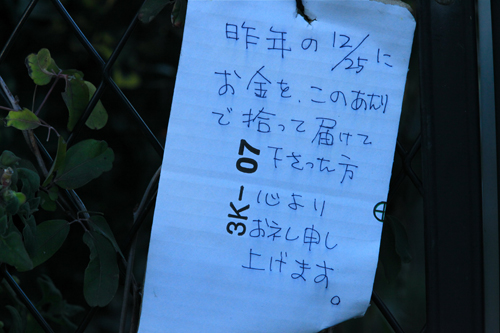 昨年の12/25に
お金を、このあたり
で拾って届けて
下さった方
心より
お礼し申し
上げます。
3K-07